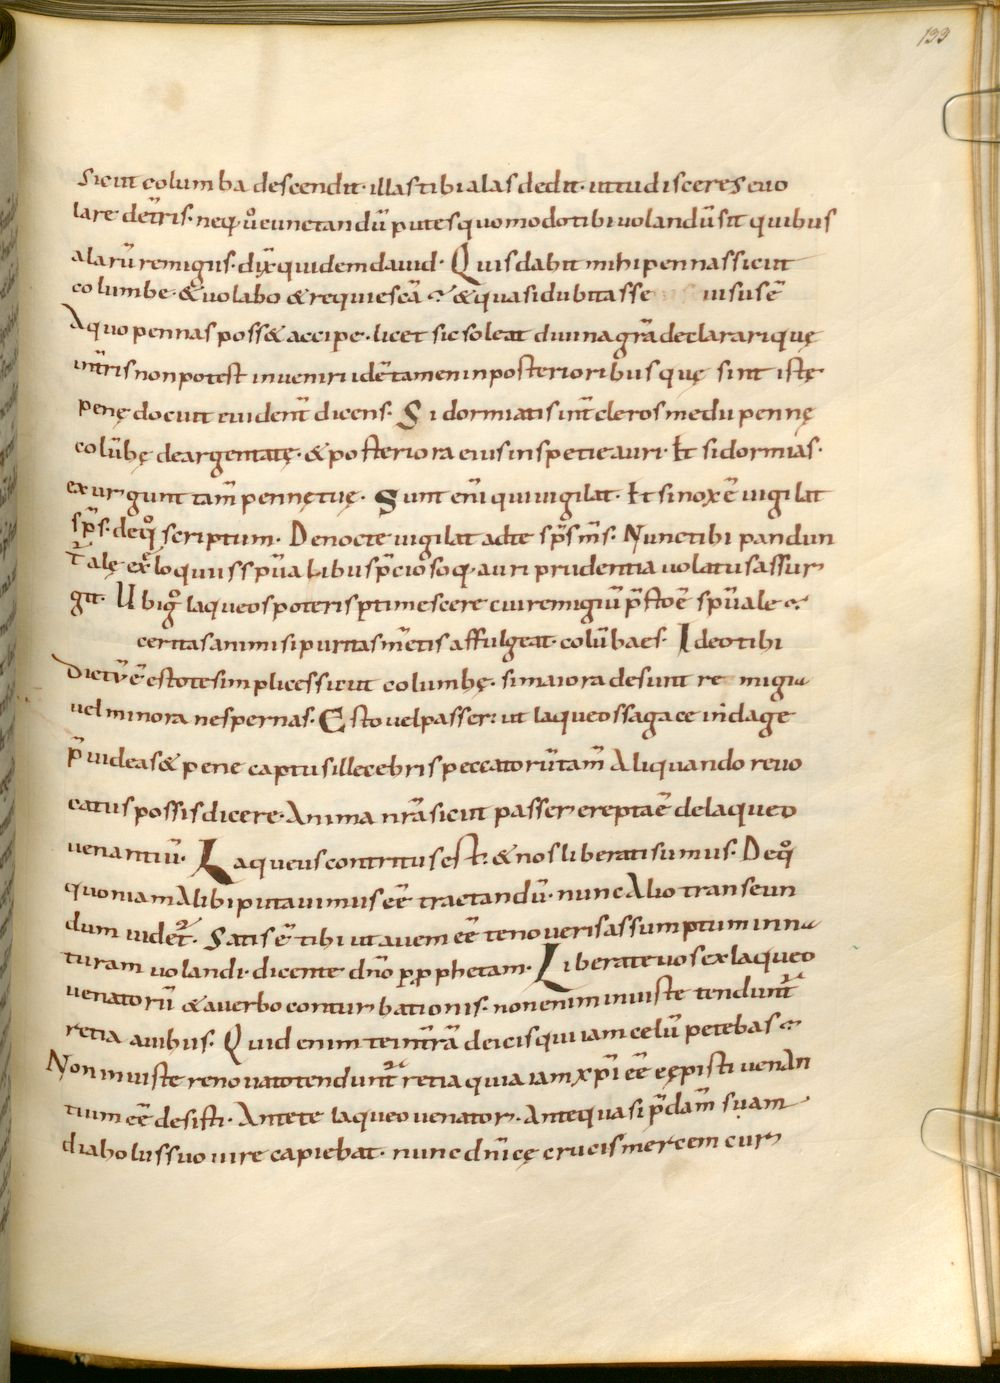 133
sicut columba descendit· illas tibi alas dedit· ut tu disceres evo
lare de tr̄ris· neq; ů cunctandū putes quomodo tibi volandū sit quibus
alarū remigiis· dix̄ quidem david· Quis dabit mihi pennas sicut
columbe· & volabo & requiescā ? & quasi dubitasse visus ē
A quo pennas poss& accipe· licet sic soleat divina grā declarari quę
in tr̄ris non potest inveniri idē tamen in posterioribus quę sint istę
penę docuit evident̄ dicens· Si dormiatis int̄ cleros medii pennę
colūbę deargentatę· & posteriora eius in spetie auri· Et si dormias·
exurgunt tam̄ pennę tuę· Sunt eni qui vigilat· Et si nox ē vigilat
sp̄s· de q̊ scriptum· De nocte vigilat ad te sp̄s m̄s· Nunc tibi pandun
t̄ alę ex eloquiis sp̄ualibus p̄cioso q; auri prudentia volatus assur
git· Ubi g̊ laqueos poteris ptimescere cui remigiū p̄sto ē sp̄uale ?
ceritas animi si puritas m̄tis affulgeat· colūbaes· Ideo tibi
dictū ē estote simplices sicut columbę· si maiora desunt remigia
vel minora ne spernas· Esto vel passer: ut laqueos sagace indage
p̄videas & pene captus illecebris peccatorū tam̄ Aliquando revo
catus possis dicere· Anima nr̄a sicut passer erepta ē de laqueo
venantiū· Laqueus contritus est: & nos liberati sumus· De q̊
quoniam Alibi putavimus eē tractandū· nunc Alio transeun
dum videt̄· Satis ē tibi ut avem eē te noveris assumptum in na
turam volandi· dicente dn̄o p pphetam· Liberate vos ex laqueo
venatorū & a verbo conturbationis· non enim iniuste tendunt̄
retia avibus· Quid enim te in tr̄rā deicis qui iam celū petebas ?
Non iniuste renovato tendunt̄ retia quia iam xp̄i eē cępisti venAn
tium eē desisti· Ante te laqueo venator· Ante quasi p̄dam̄ suam
diabolus suo iure capiebat· nunc dn̄icę crucis mercem cur